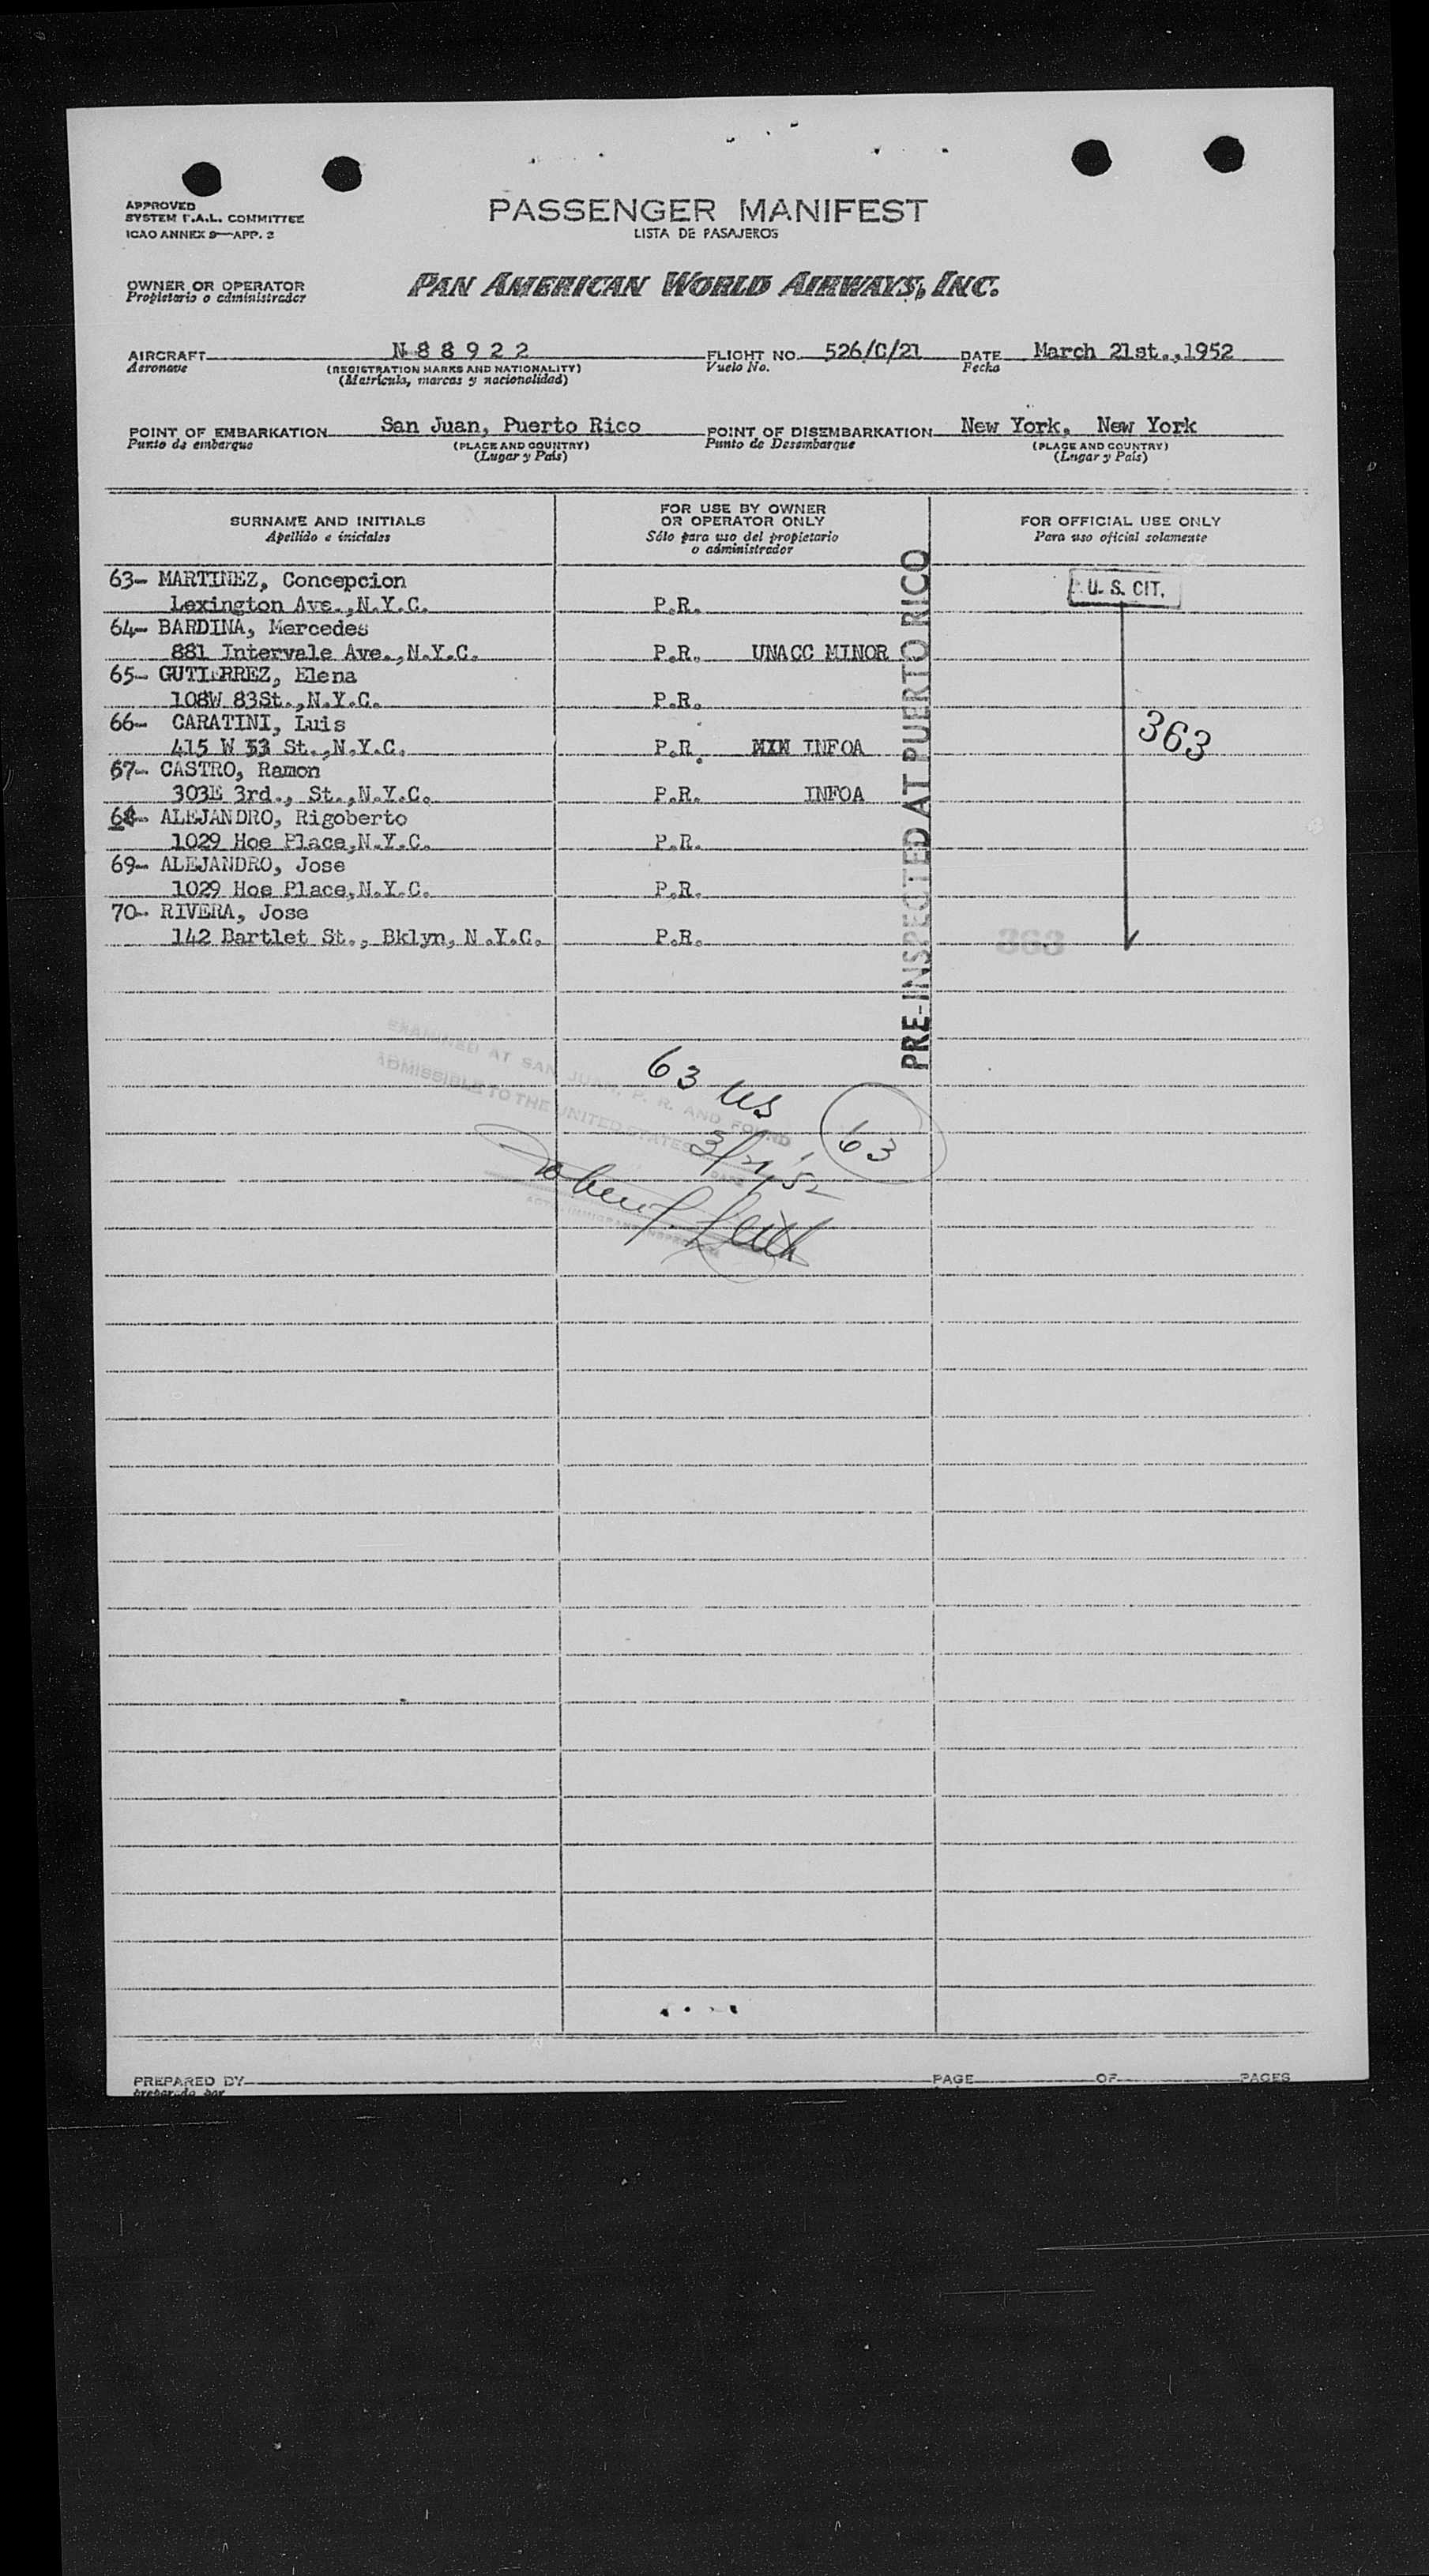 APPROVED
SYSTEM F.A.L. COMMITTEE
ICAO ANNEX 9—APP. 2
PASSENGER MANIFEST
LISTA DE PASAJEROS
OWNER OR OPERATOR
Propietario o administrador
PAN AMERICAN WORLD AIRWAYS, INC.
AIRCRAFT N 8 8 9 2 2 FLIGHT NO. 526/C/21 DATE March 21st.,1952
Aeronave (REGISTRATION MARKS AND NATIONALITY) Vuelo No. Fecha
(Matrícula, marcas y nacionalidad)
POINT OF EMBARKATION San Juan, Puerto Rico POINT OF DISEMBARKATION New York, New York
Punto de embarque (PLACE AND COUNTRY) Punto de Desembarque (PLACE AND COUNTRY)
(Lugar y País) (Lugar y País)
SURNAME AND INITIALS
Apellido e iniciales
FOR USE BY OWNER
OR OPERATOR ONLY
Sólo para uso del propietario
o administrador
FOR OFFICIAL USE ONLY
Para uso oficial solamente
63- MARTINEZ, Concepcion
Lexington Ave.,N.Y.C. P.R.
U. S. CIT.
64- BARDINA, Mercedes
881 Intervale Ave.,N.Y.C. P.R. UNACC MINOR
65- GUTIERREZ, Elena
108W 83St.,N.Y.C. P.R.
66- CARATINI, Luis
415 W 53 St.,N.Y.C. P.R. INFOA
363
67- CASTRO, Ramon
303E 3rd., St.,N.Y.C. P.R. INFOA
68- ALEJANDRO, Rigoberto
1029 Hoe Place,N.Y.C. P.R.
69- ALEJANDRO, Jose
1029 Hoe Place,N.Y.C. P.R.
70- RIVERA, Jose
142 Bartlet St., Bklyn, N.Y.C. P.R.
363
PRE-INSPECTED AT PUERTO RICO
EXAMINED AT SAN JUAN, P. R. AND FOUND
ADMISSIBLE TO THE UNITED STATES
63 US
63
3/21/52
PREPARED BY PAGE OF PAGES
preparado por